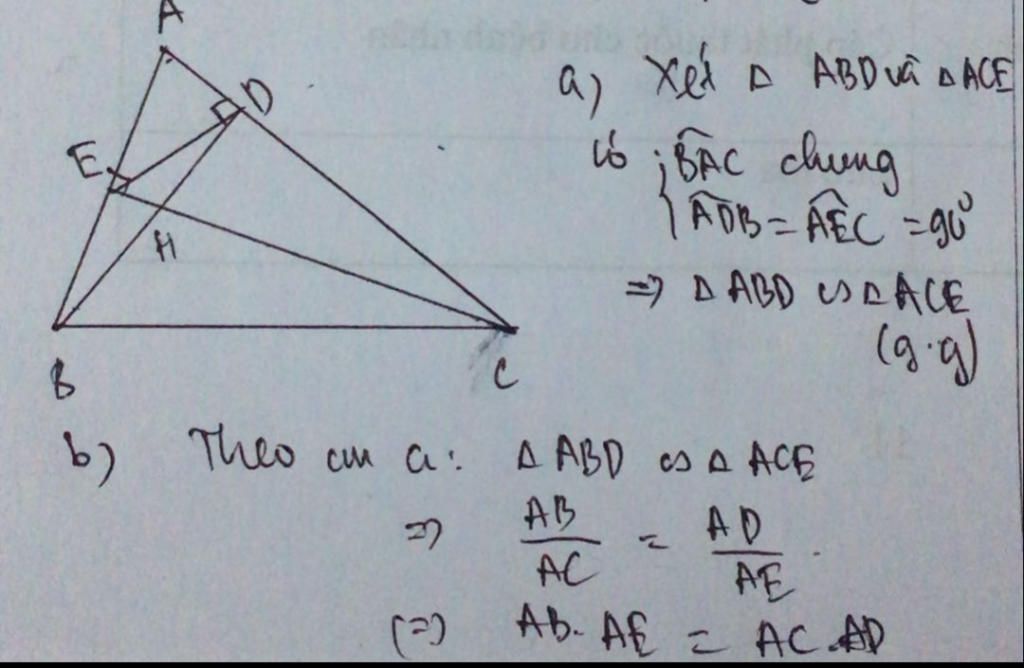 A
D
E
H
B
C
a) Xét Δ ABD và Δ ACE
có { BAC^ chung
ADB^ = AEC^ = 90°
=> Δ ABD ∽ Δ ACE
(g.g)
b) Theo cm a: Δ ABD ∽ Δ ACE
=> AB/AC = AD/AE
(=) AB. AE = AC.AD